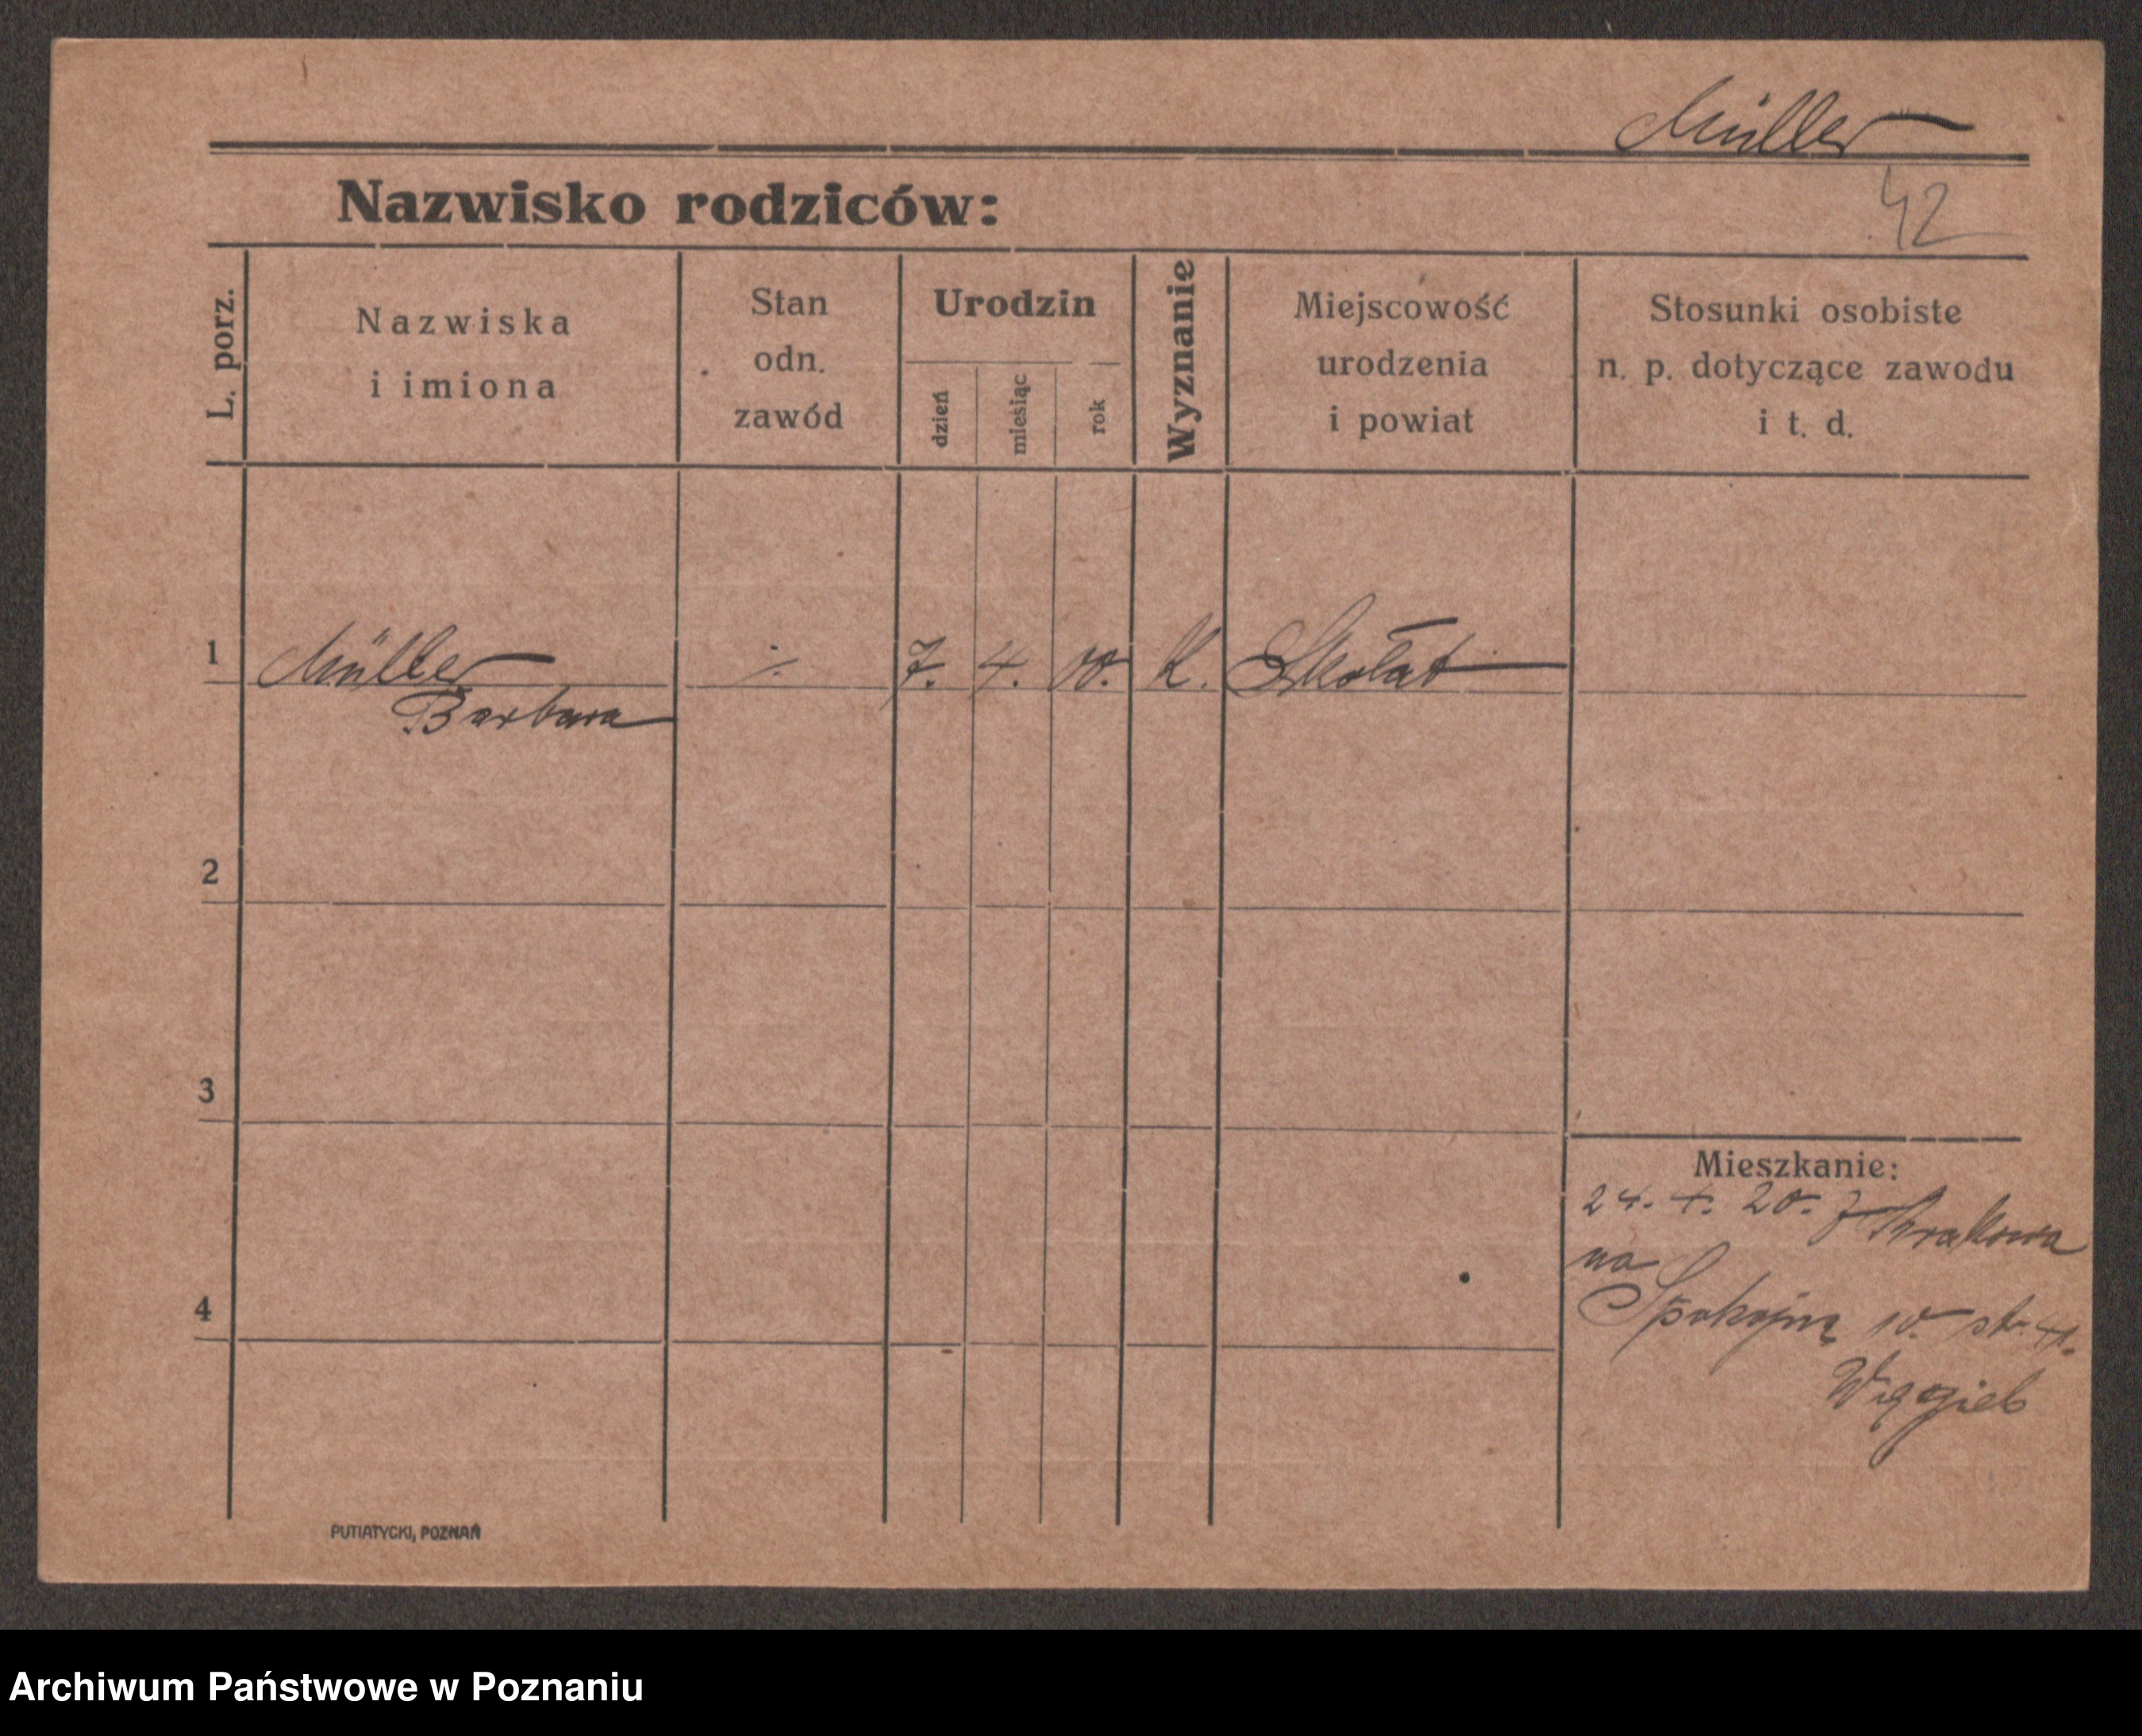 Müller
Nazwisko rodziców:
42
L. porz.
Nazwiska
i imiona
Stan
odn.
zawód
Urodzin
dzień
miesiąc
rok
Wyznanie
Miejscowość
urodzenia
i powiat
Stosunki osobiste
n. p. dotyczące zawodu
i t. d.
1
Müller
Barbara
7. 4. 00. K. Skałat
2
3
4
Mieszkanie:
24. 4. 20. z Krakowa
na
Spokojną 10. ptr.
PUTIATYCKI, POZNAŃ
Archiwum Państwowe w Poznaniu